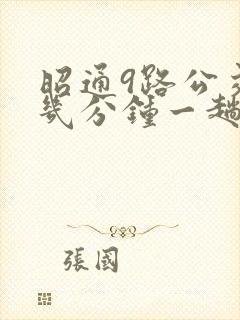 昭通9路公交
幾分鐘一趟
張國